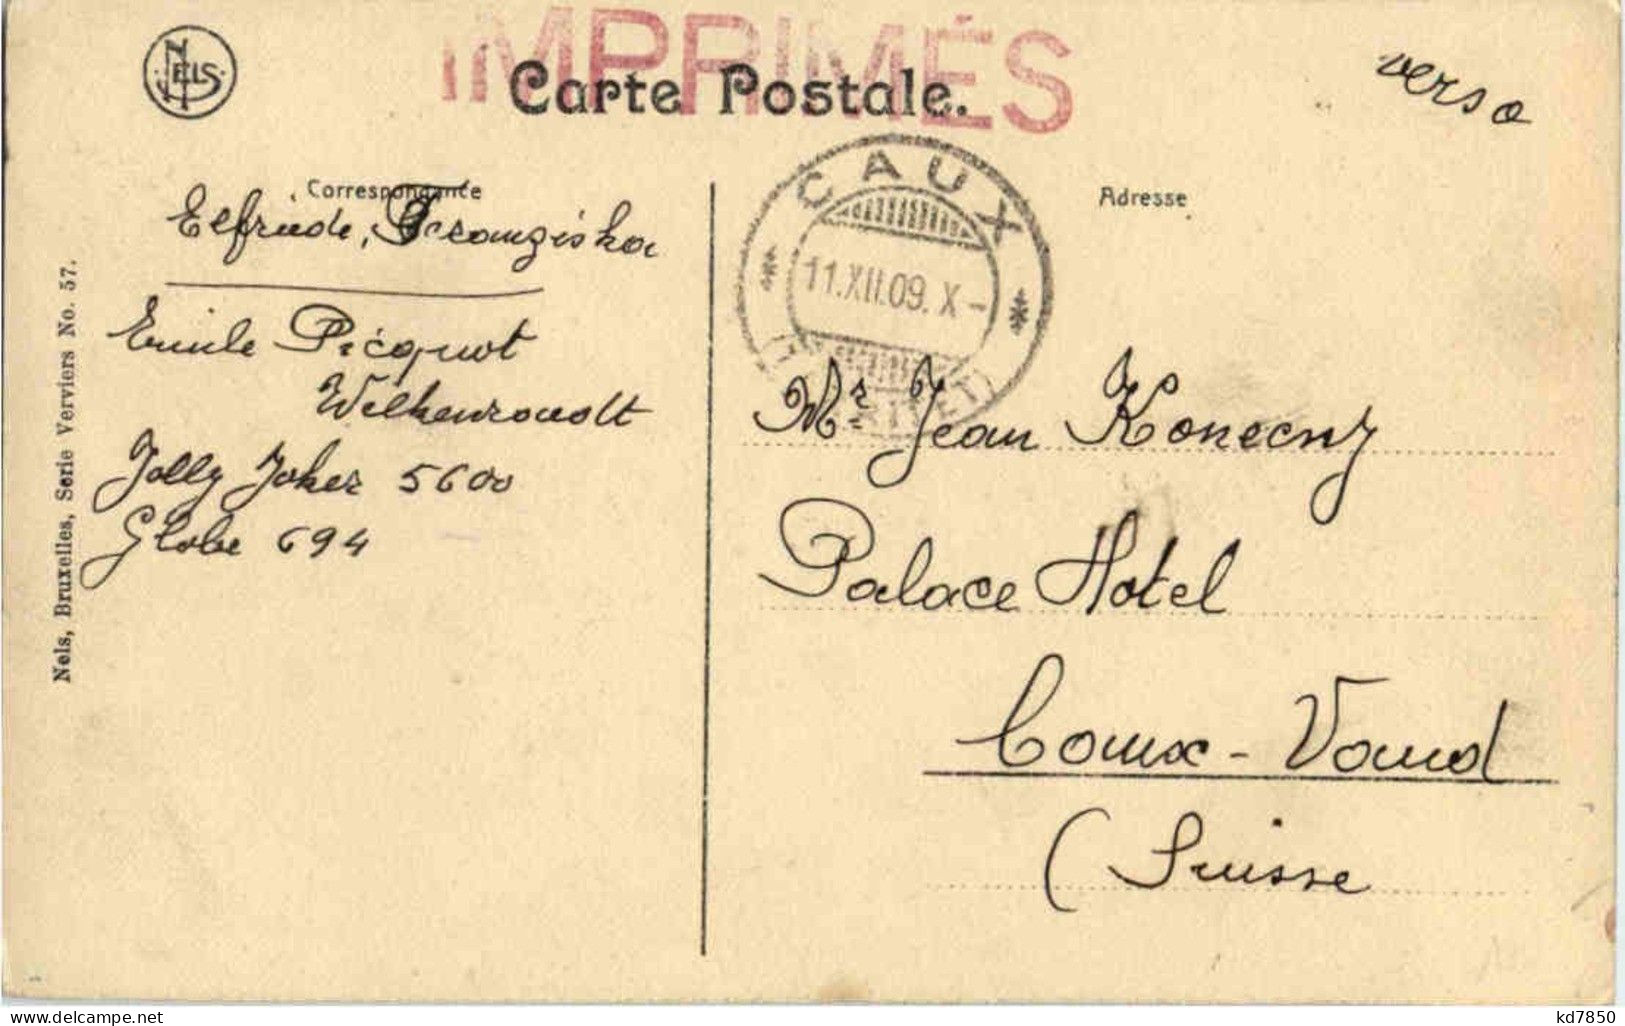 IMPRIMÉS
NELS
Carte Postale.
verso
Correspondance
Elfriede, Franziska
Emile Picquot
Welkenraedt
Jolly Joker 5600
Globe 694
Nels, Bruxelles, Serie Verviers No. 57.
CAUX
11.XII.09. X-
Adresse
Mr. Jean Konecny
Palace Hotel
Caux - Vaud
(Suisse
kd7850